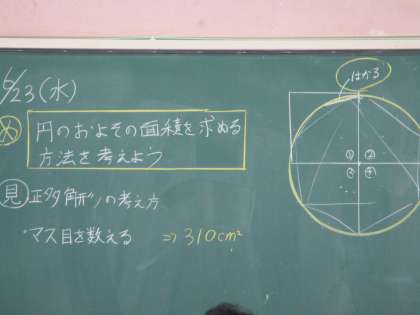 6/23(水)
め 円のおよその面積を求める
方法を考えよう
見 正多角形の考え方
・マス目を数える ⇒310cm²
はかる
① ②
③ ④